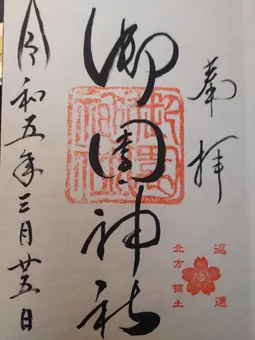 奉拝
御園神社
北方領土
返還
令和五年三月廿五日